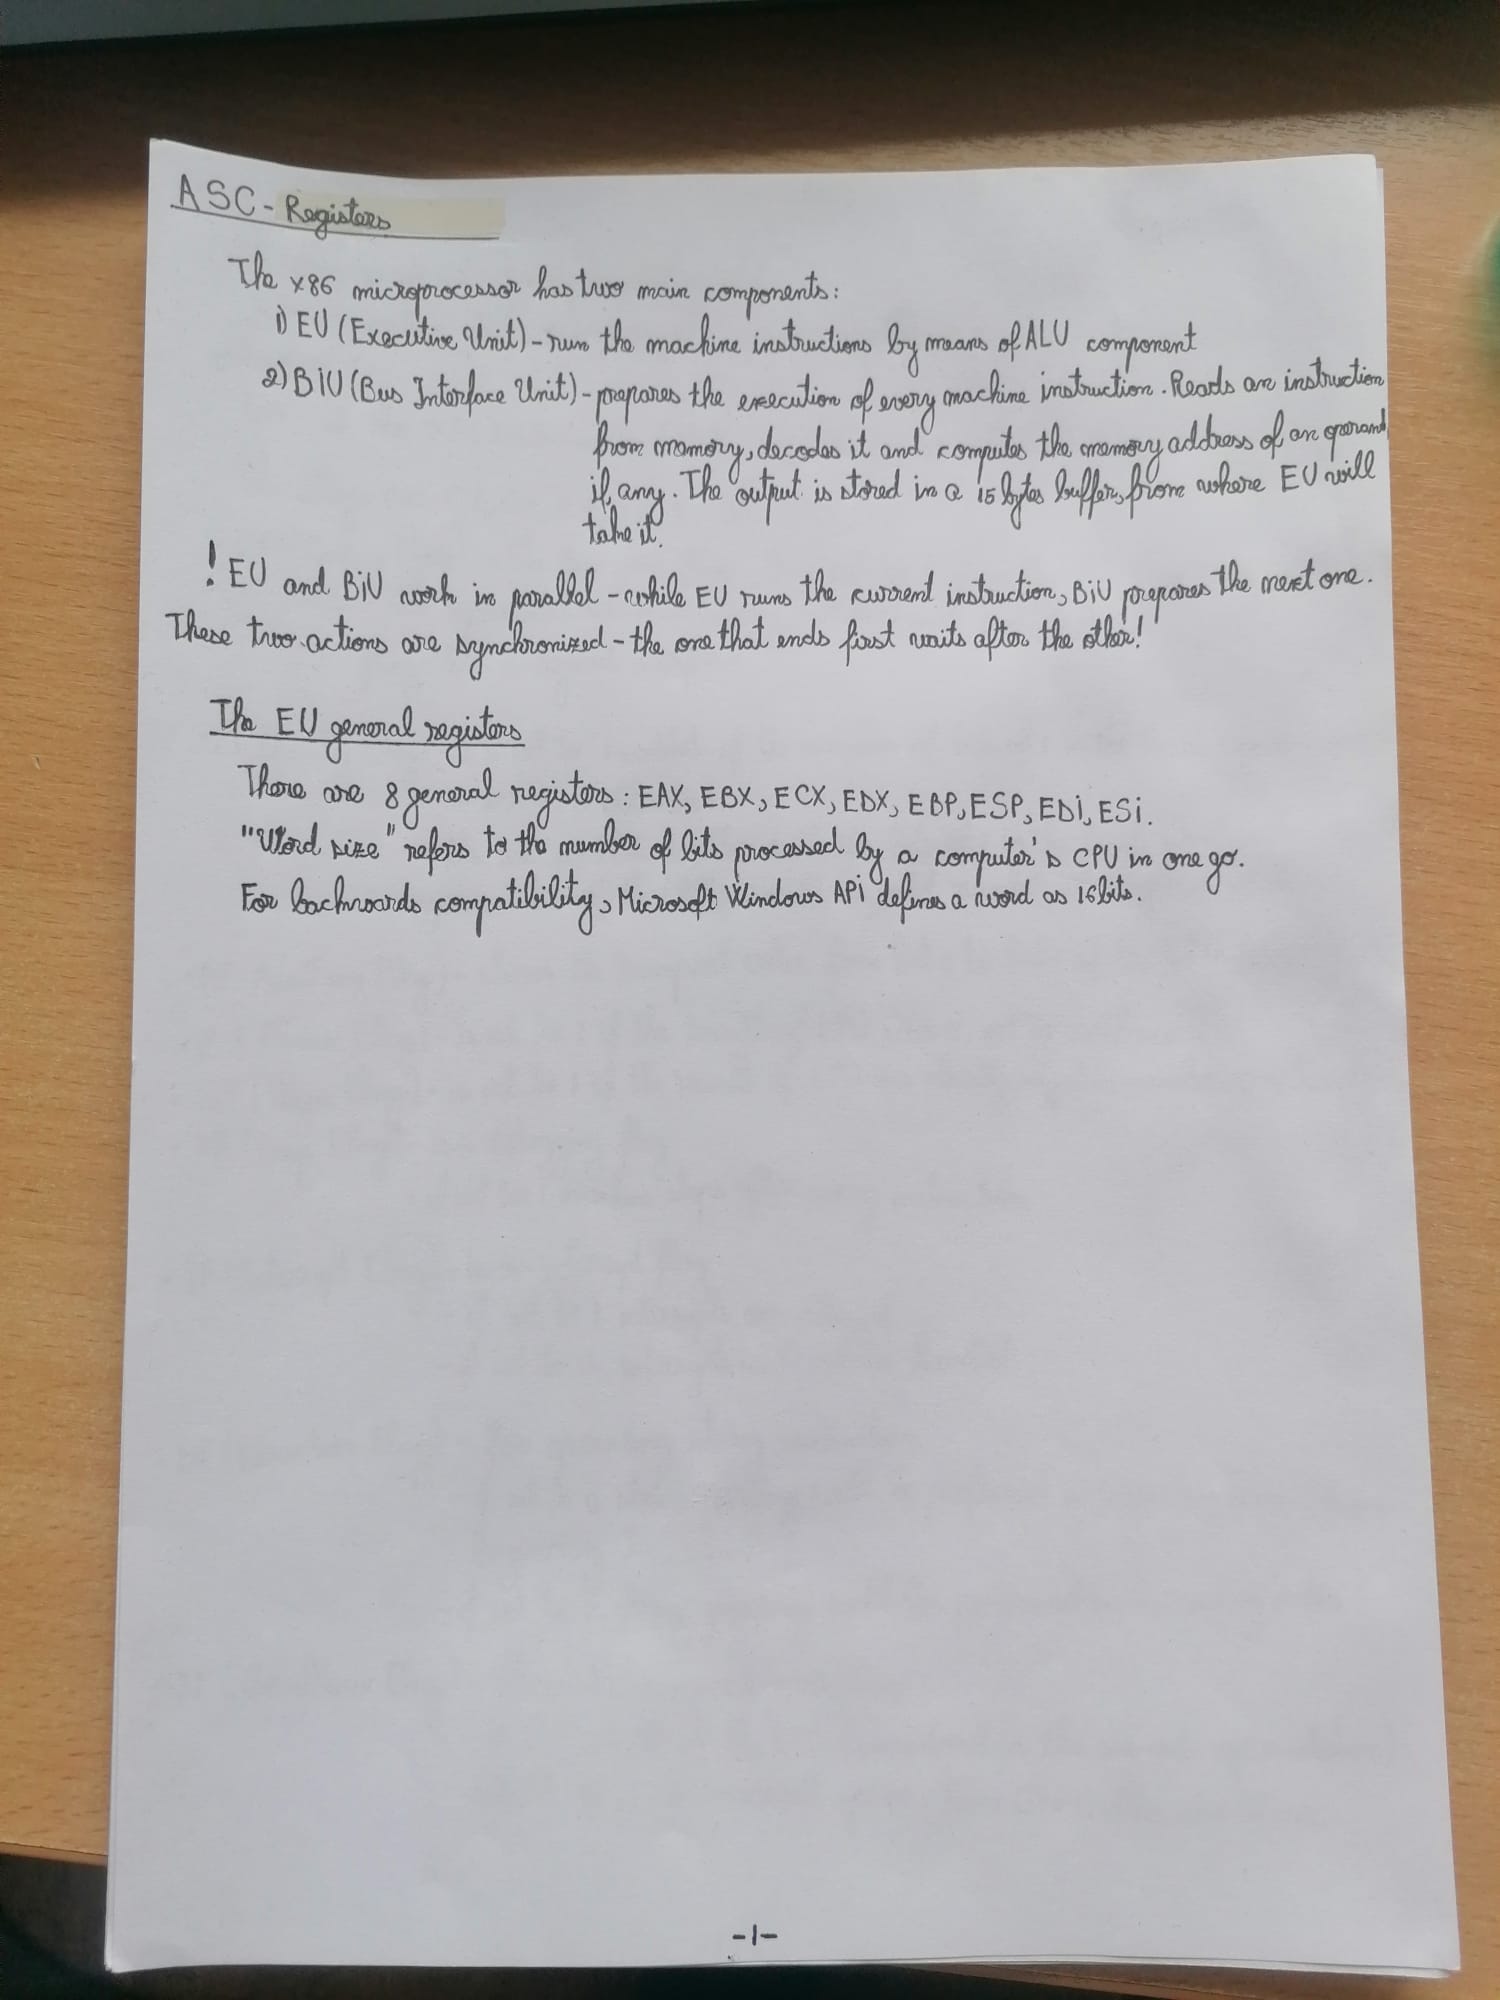 ASC - Registers
The x86 microprocessor has two main components:
1) EU (Executive Unit) - run the machine instructions by means of ALU component
2) BIU (Bus Interface Unit) - prepares the execution of every machine instruction. Reads an instruction
from memory, decodes it and computes the memory address of an operand,
if any. The output is stored in a 15 bytes buffer, from where EU will
take it.
! EU and BIU work in parallel - while EU runs the current instruction, BIU prepares the next one.
These two actions are synchronized - the one that ends first waits after the other!
The EU general registers
There are 8 general registers: EAX, EBX, ECX, EDX, EBP, ESP, EDI, ESI.
"Word size" refers to the number of bits processed by a computer's CPU in one go.
For backwards compatibility, Microsoft Windows API defines a word as 16 bits.
-1-